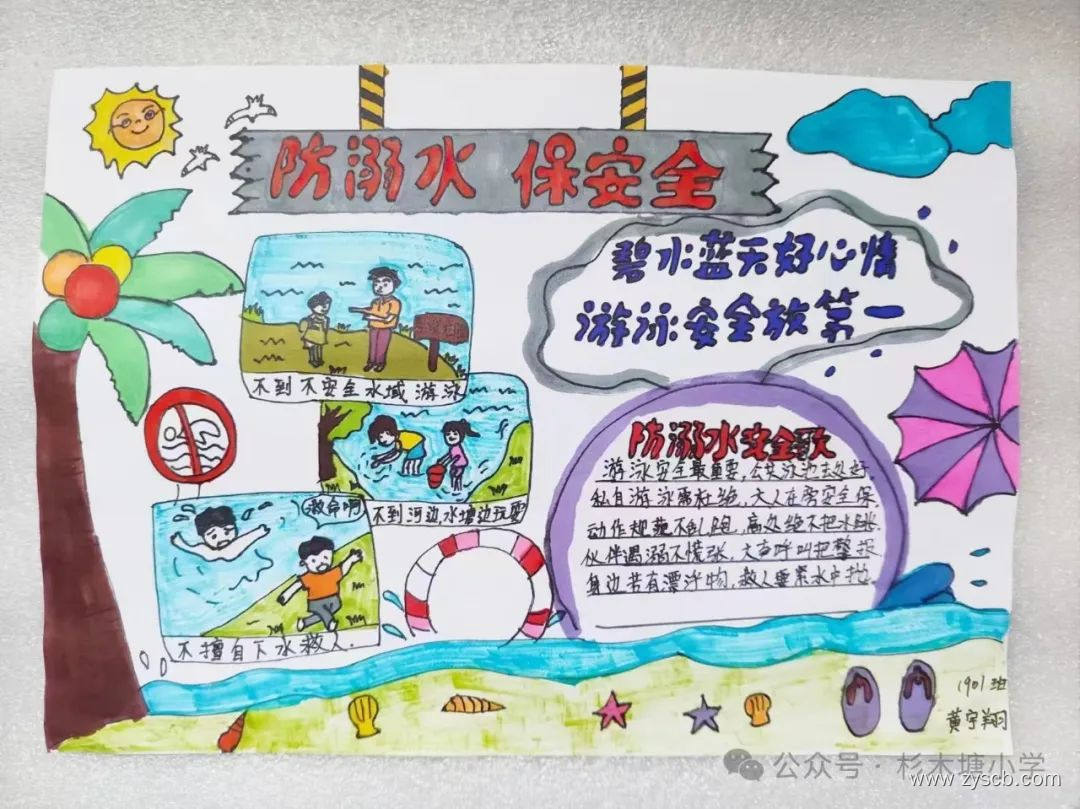 防溺水 保安全
碧水蓝天好心情
游泳安全放第一
不到不安全水域游泳
不到河边,水塘边玩耍
救命啊
不擅自下水救人.
防溺水安全歌
游泳安全最重要,公共泳池去处好.
私自游泳需杜绝,大人在旁安全保.
动作规范不乱跑,高处绝不把水跳.
伙伴遇溺不慌张,大声呼叫把警报.
身边若有漂浮物,救人要紧水中抛.
1901班
黄宇翔
公众号·杉木塘小学
www.zyscb.com